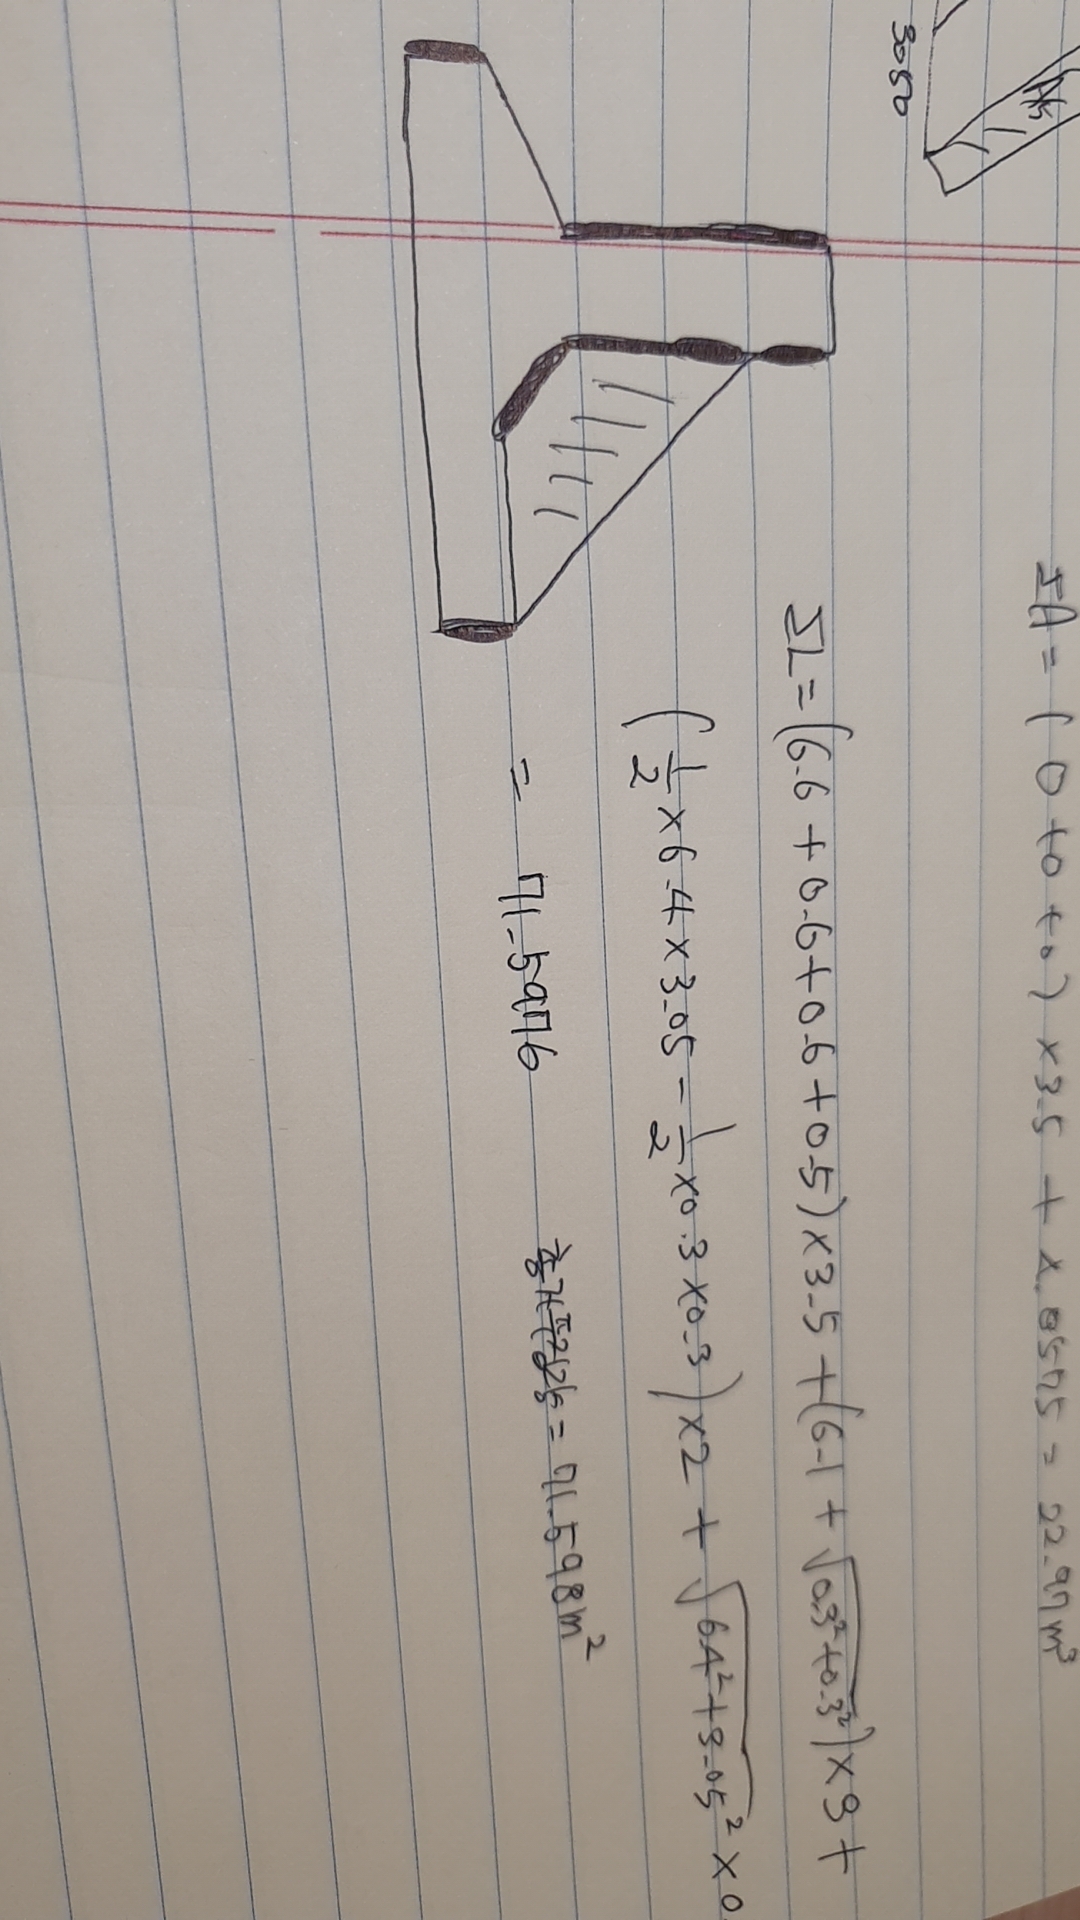 3050
A3
ΣA = ( 0 + 0 + 0 ) × 3.5 + × .0575 = 22.97m³
ΣL = (6.6 + 0.6 + 0.6 + 0.5) × 3.5 + (6.1 + √0.3² + 0.3²) × 3 +
(1/2 × 6.4 × 3.05 - 1/2 × 0.3 × 0.3) × 2 + √6.4² + 3.05² × 0.
= 71.5976
= 71.598m²